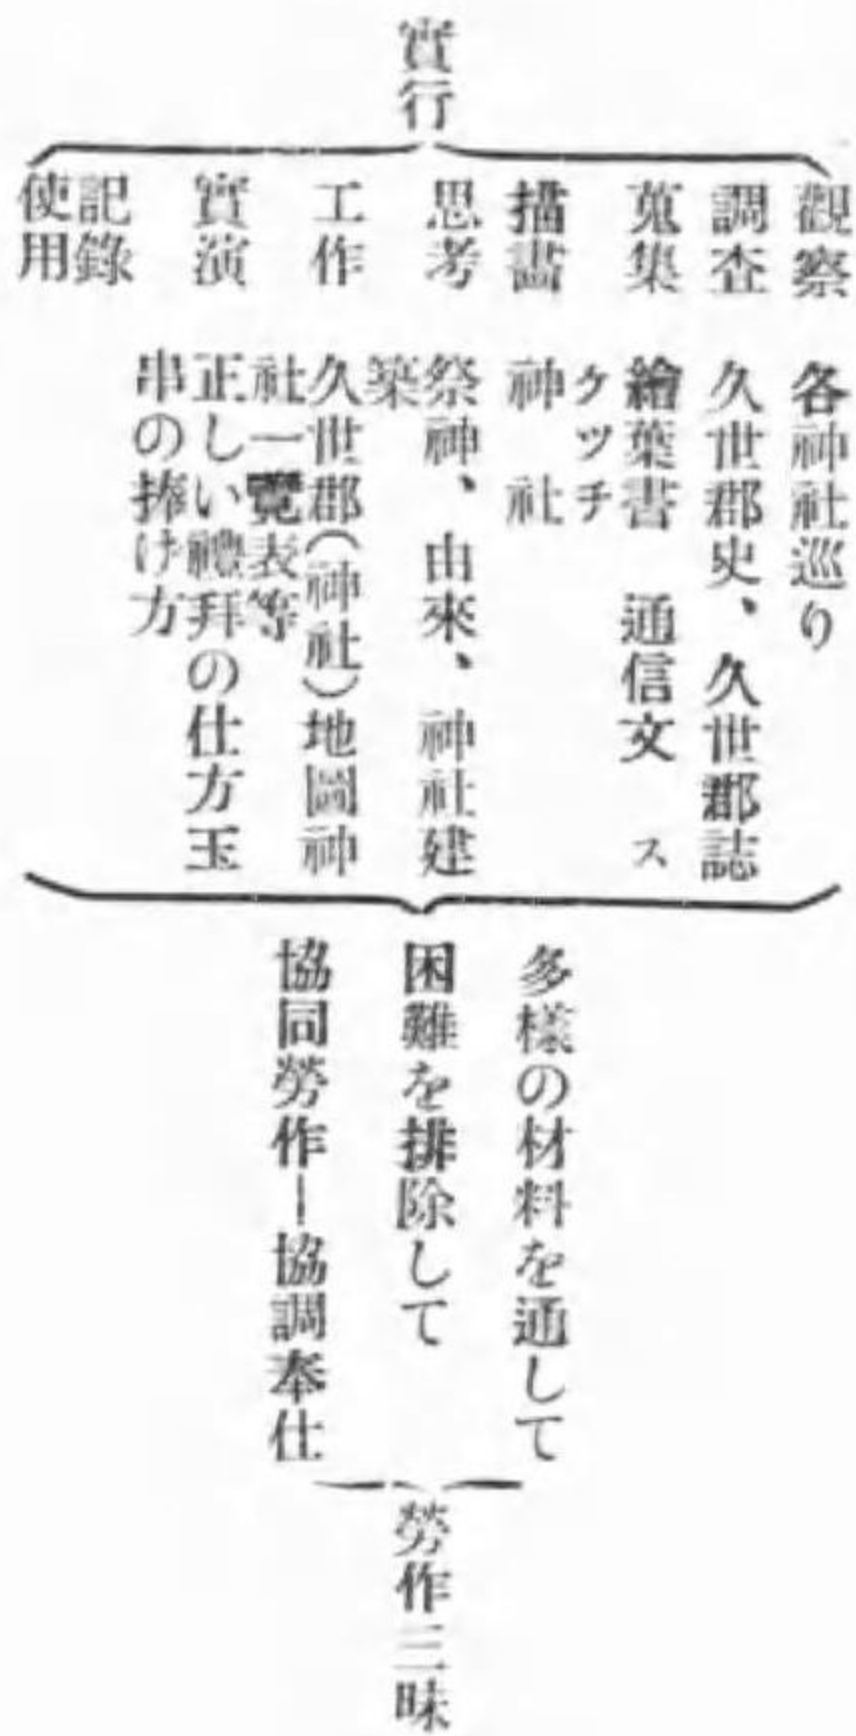 實行
觀察　各神社巡り
調査　久世郡史、久世郡誌
蒐集　繪葉書　通信文　ス
ケッチ
描畵　神社
思考　祭神、由來、神社建
築
工作　久世郡(神社)地圖神
社一覽表等
實演　正しい禮拜の仕方玉
串の捧け方
記錄
使用
多樣の材料を通して
困難を排除して
協同勞作ー協調奉仕
勞作三昧